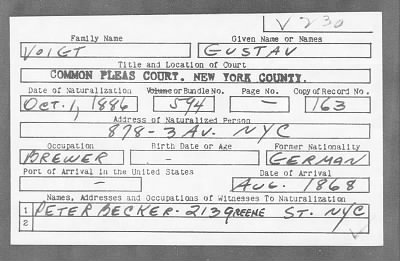 V 230
Family Name Given Name or Names
VOIGT GUSTAV
Title and Location of Court
COMMON PLEAS COURT. NEW YORK COUNTY.
Date of Naturalization Volume or Bundle No. Page No. Copy of Record No.
OCT. 1, 1886 594 - 163
Address of Naturalized Person
878-3 AV. NYC
Occupation Birth Date or Age Former Nationality
BREWER - GERMAN
Port of Arrival in the United States Date of Arrival
- AUG. 1868
Names, Addresses and Occupations of Witnesses To Naturalization
1 PETER BECKER- 213 GREENE ST. NYC
2